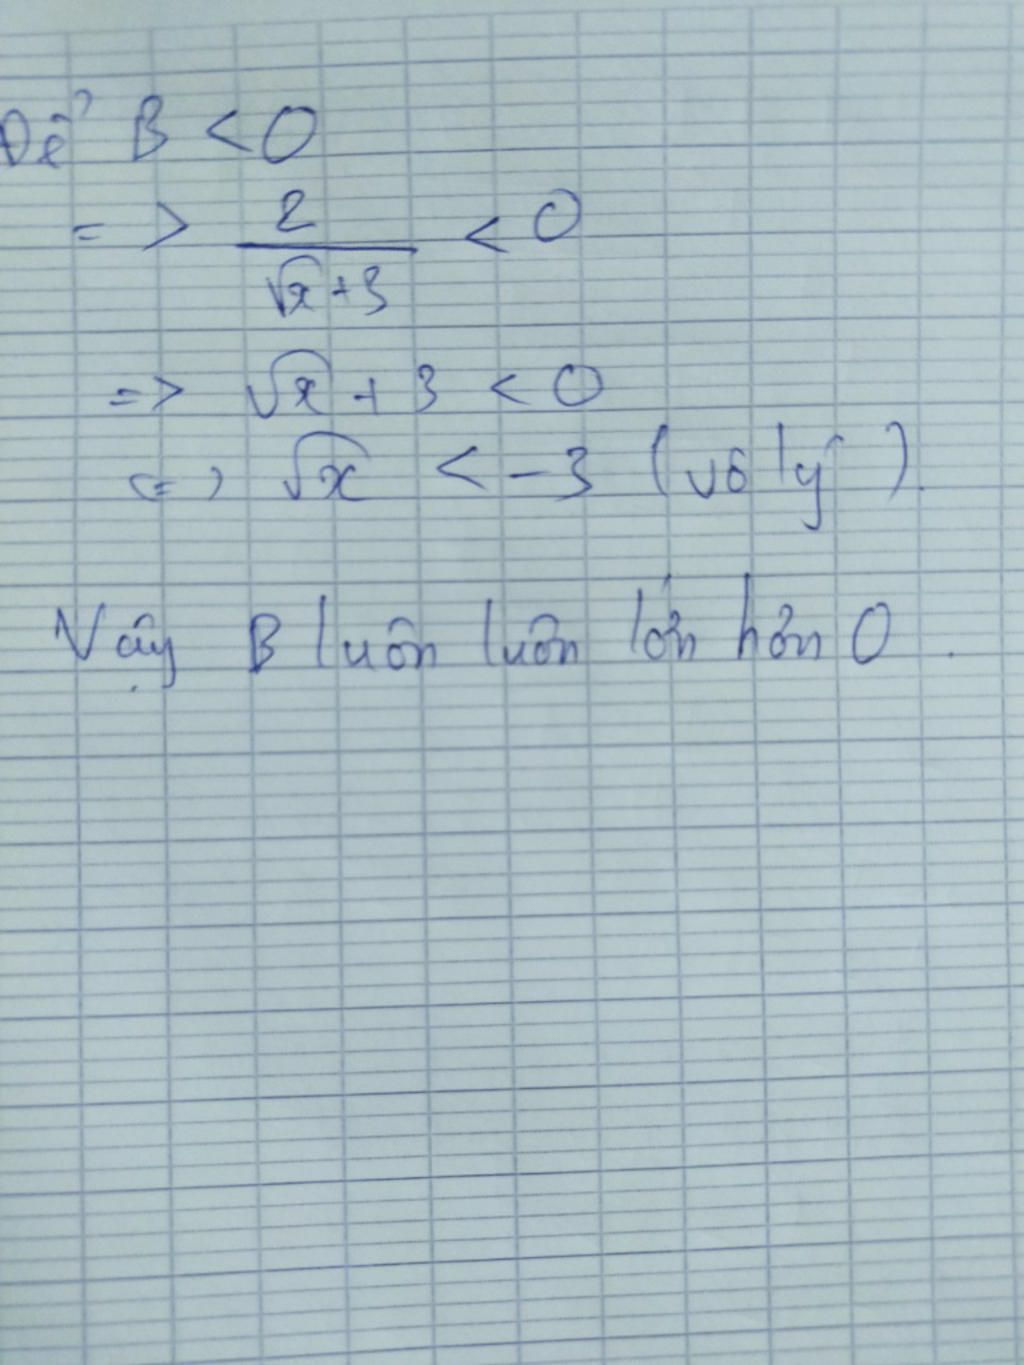 Để B < 0
=> 2/(√x + 3) < 0
=> √x + 3 < 0
<=> √x < -3 (vô lý).
Vậy B luôn luôn lớn hơn 0.